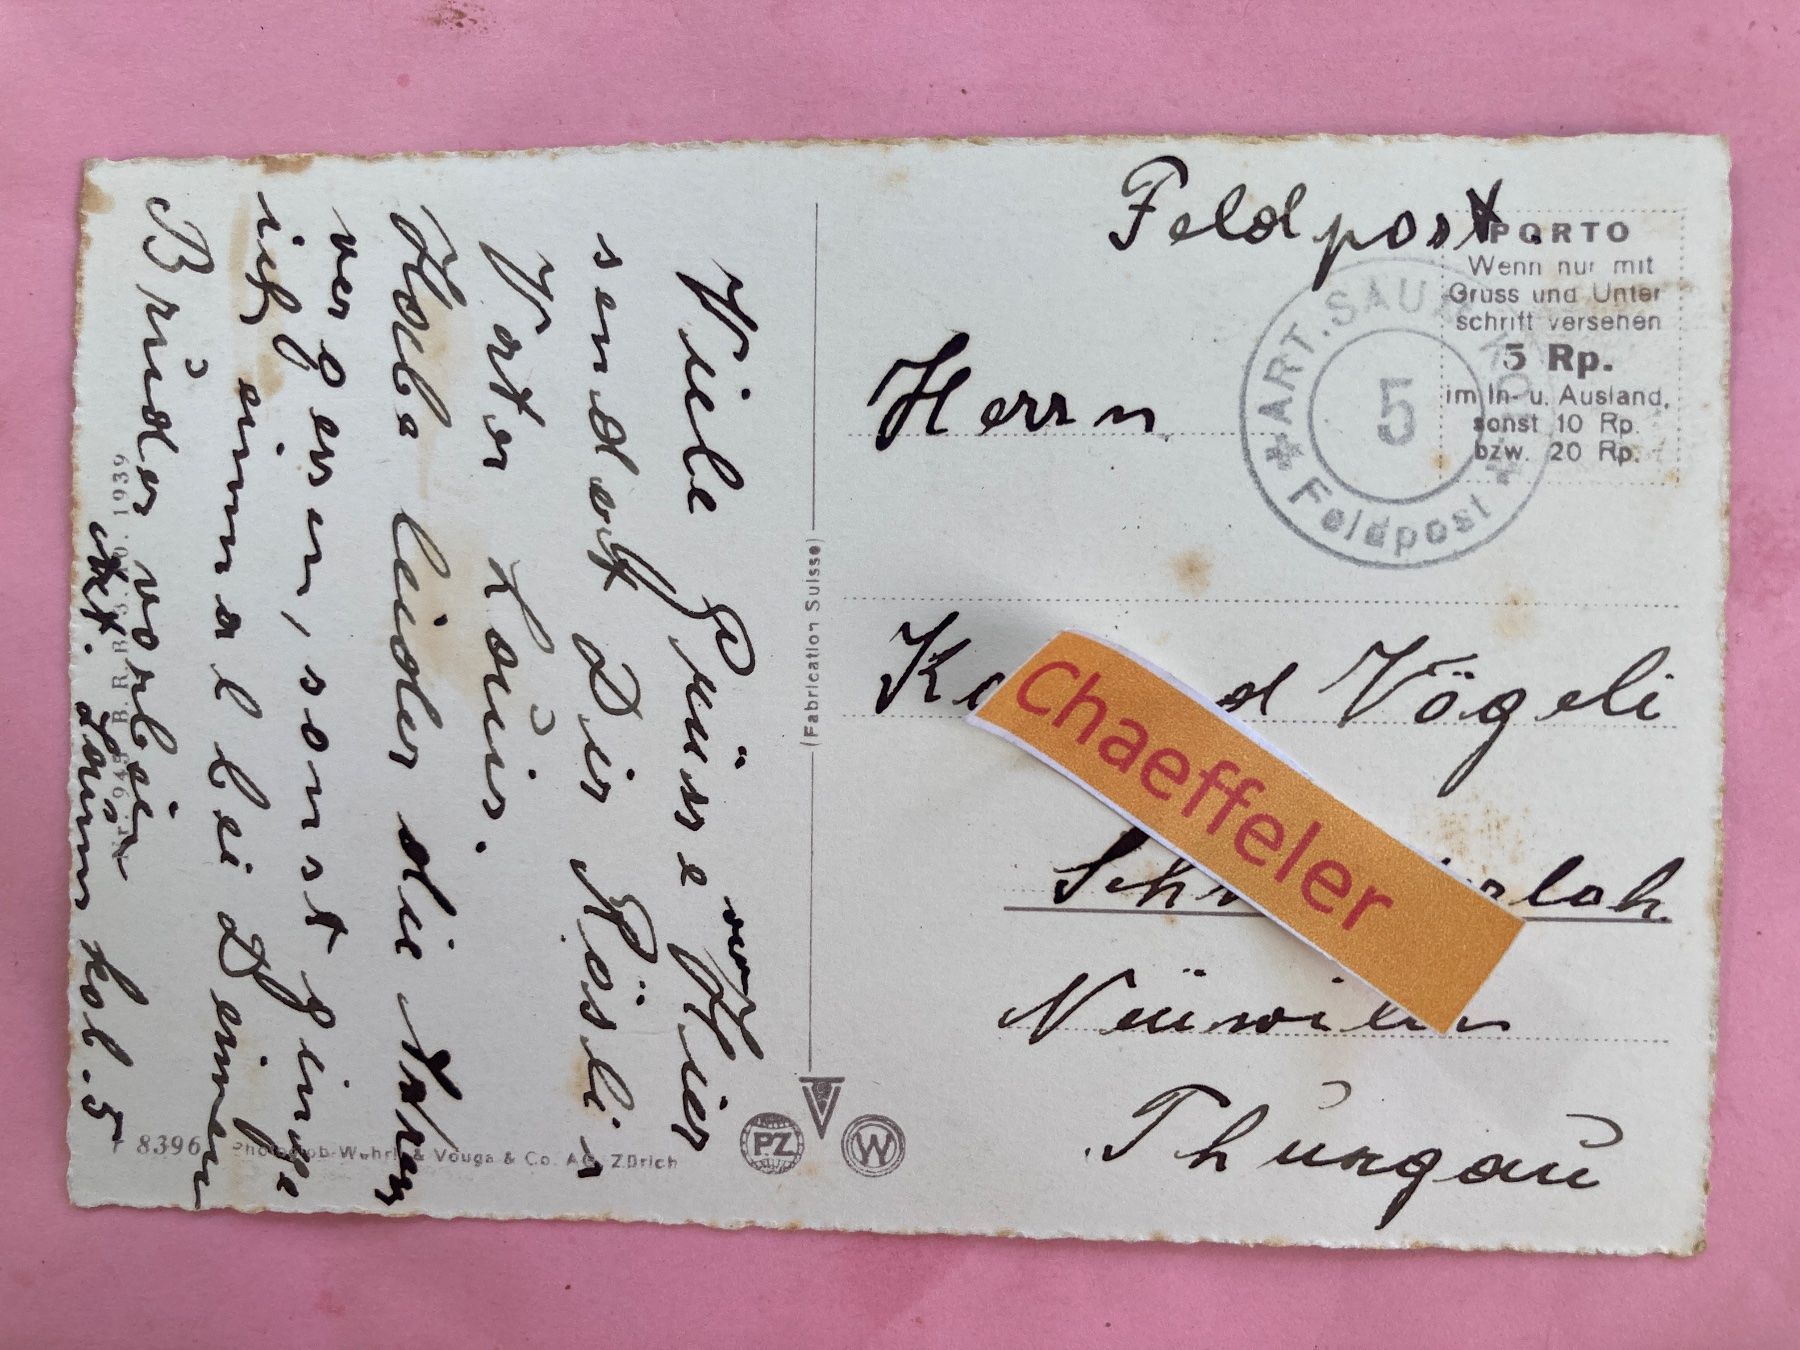 Feldpost.
PORTO
Wenn nur mit
Gruss und Unter
schrift versehen
5 Rp.
im In- u. Ausland,
sonst 10 Rp.
bzw. 20 Rp.
ART. SAUM
5
Feldpost
Herrn
Vögeli
Chaeffeler
Neuwilen
Thurgau
Viele Grüsse von Hier
sendet Dir Röslir
Vater Louis.
Habe leider die
vergessen, sonst ginge
ich einmal bei Deinem
Bruder vorbei
Kol. 5
(Fabrication Suisse)
PZ
W
8396 Photoglob-Wehrli & Vouga & Co. AG. Zürich
1939